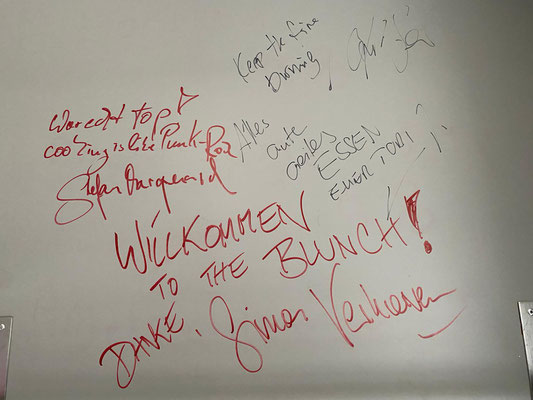 Keep the fire
burning
War echt top!
cooking is like Punk-Rock
Stefan Marquard
Alles
gute
geiles
ESSEN
EUER TORI
WILLKOMMEN
TO THE BLUNCH!
DANKE, Simon Verhoeven